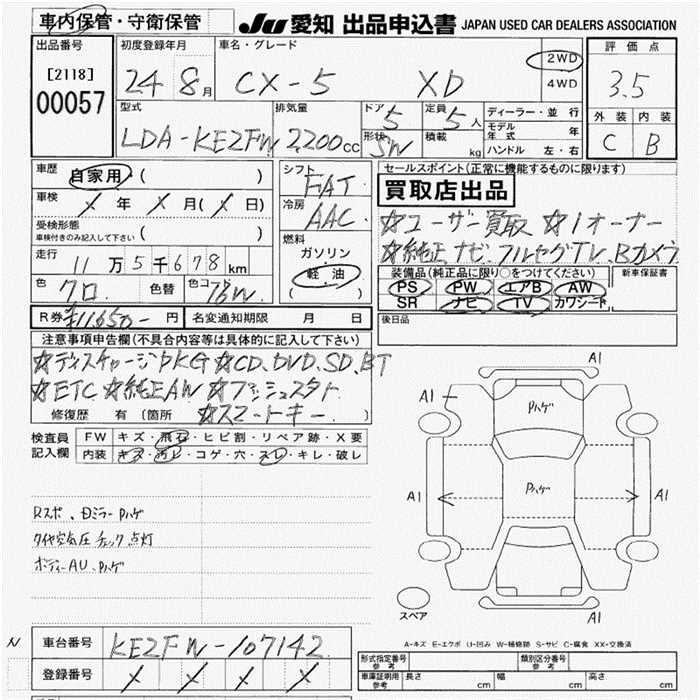 車内保管・守衛保管
JU 愛知 出品申込書 JAPAN USED CAR DEALERS ASSOCIATION
出品番号
[2118]
00057
初度登録年月
24 8月
車名・グレード
CX-5 XD
2WD
4WD
評価点
3.5
外装 内装
C B
型式
LDA-KE2FW
排気量
2,200cc
ドア
5
形状
SW
定員
5人
積載
kg
ディーラー・並行
モデル年式 年
ハンドル 左・右
車歴
自家用 ( )
車検
X 年 X 月( X 日)
受検形態
車検付きのみ記入して下さい ( )
走行
11万5千678km
色
クロ
色替
色コード
シフト
FAT
冷房
AAC
燃料
ガソリン
軽油
( )
セールスポイント(正常に機能するものに限ります)
買取店出品
☆ユーザー買取 ☆1オーナー
☆純正ナビ、フルセグTV、Bカメラ
装備品(純正品に限り○をつけてください)
PS PW エアB AW
SR ナビ TV カワシート
新車保証書
後日品
R券 ¥11,650- 円
名変通知期限 月 日
注意事項申告欄(不具合内容等は具体的に記入して下さい)
☆ディスチャージPKG ☆CD、DVD、SD、BT
☆ETC ☆純正AW ☆プッシュスタート
☆スマートキー
修復歴 有 [箇所
検査員記入欄
FW キズ・飛石・ヒビ割・リペア跡・X要
内装 キズ・汚レ・コゲ・穴・スレ・キレ・破レ
Rスポ、Dミラー Pハゲ
タイヤ空気圧チェック点灯
ボディーAU、Pハゲ
A1
A1
Pハゲ
A1
Pハゲ
A1
A1
A1
スペア
A-キズ E-エクボ U-凹み W-補修跡 S-サビ C-腐食 XX-交換済
N
車台番号
KE2FW-107142
登録番号
X X X X
形式指定番号 参考
類別区分番号 参考
車庫証明用 参考
長さ cm
幅 cm
高さ cm